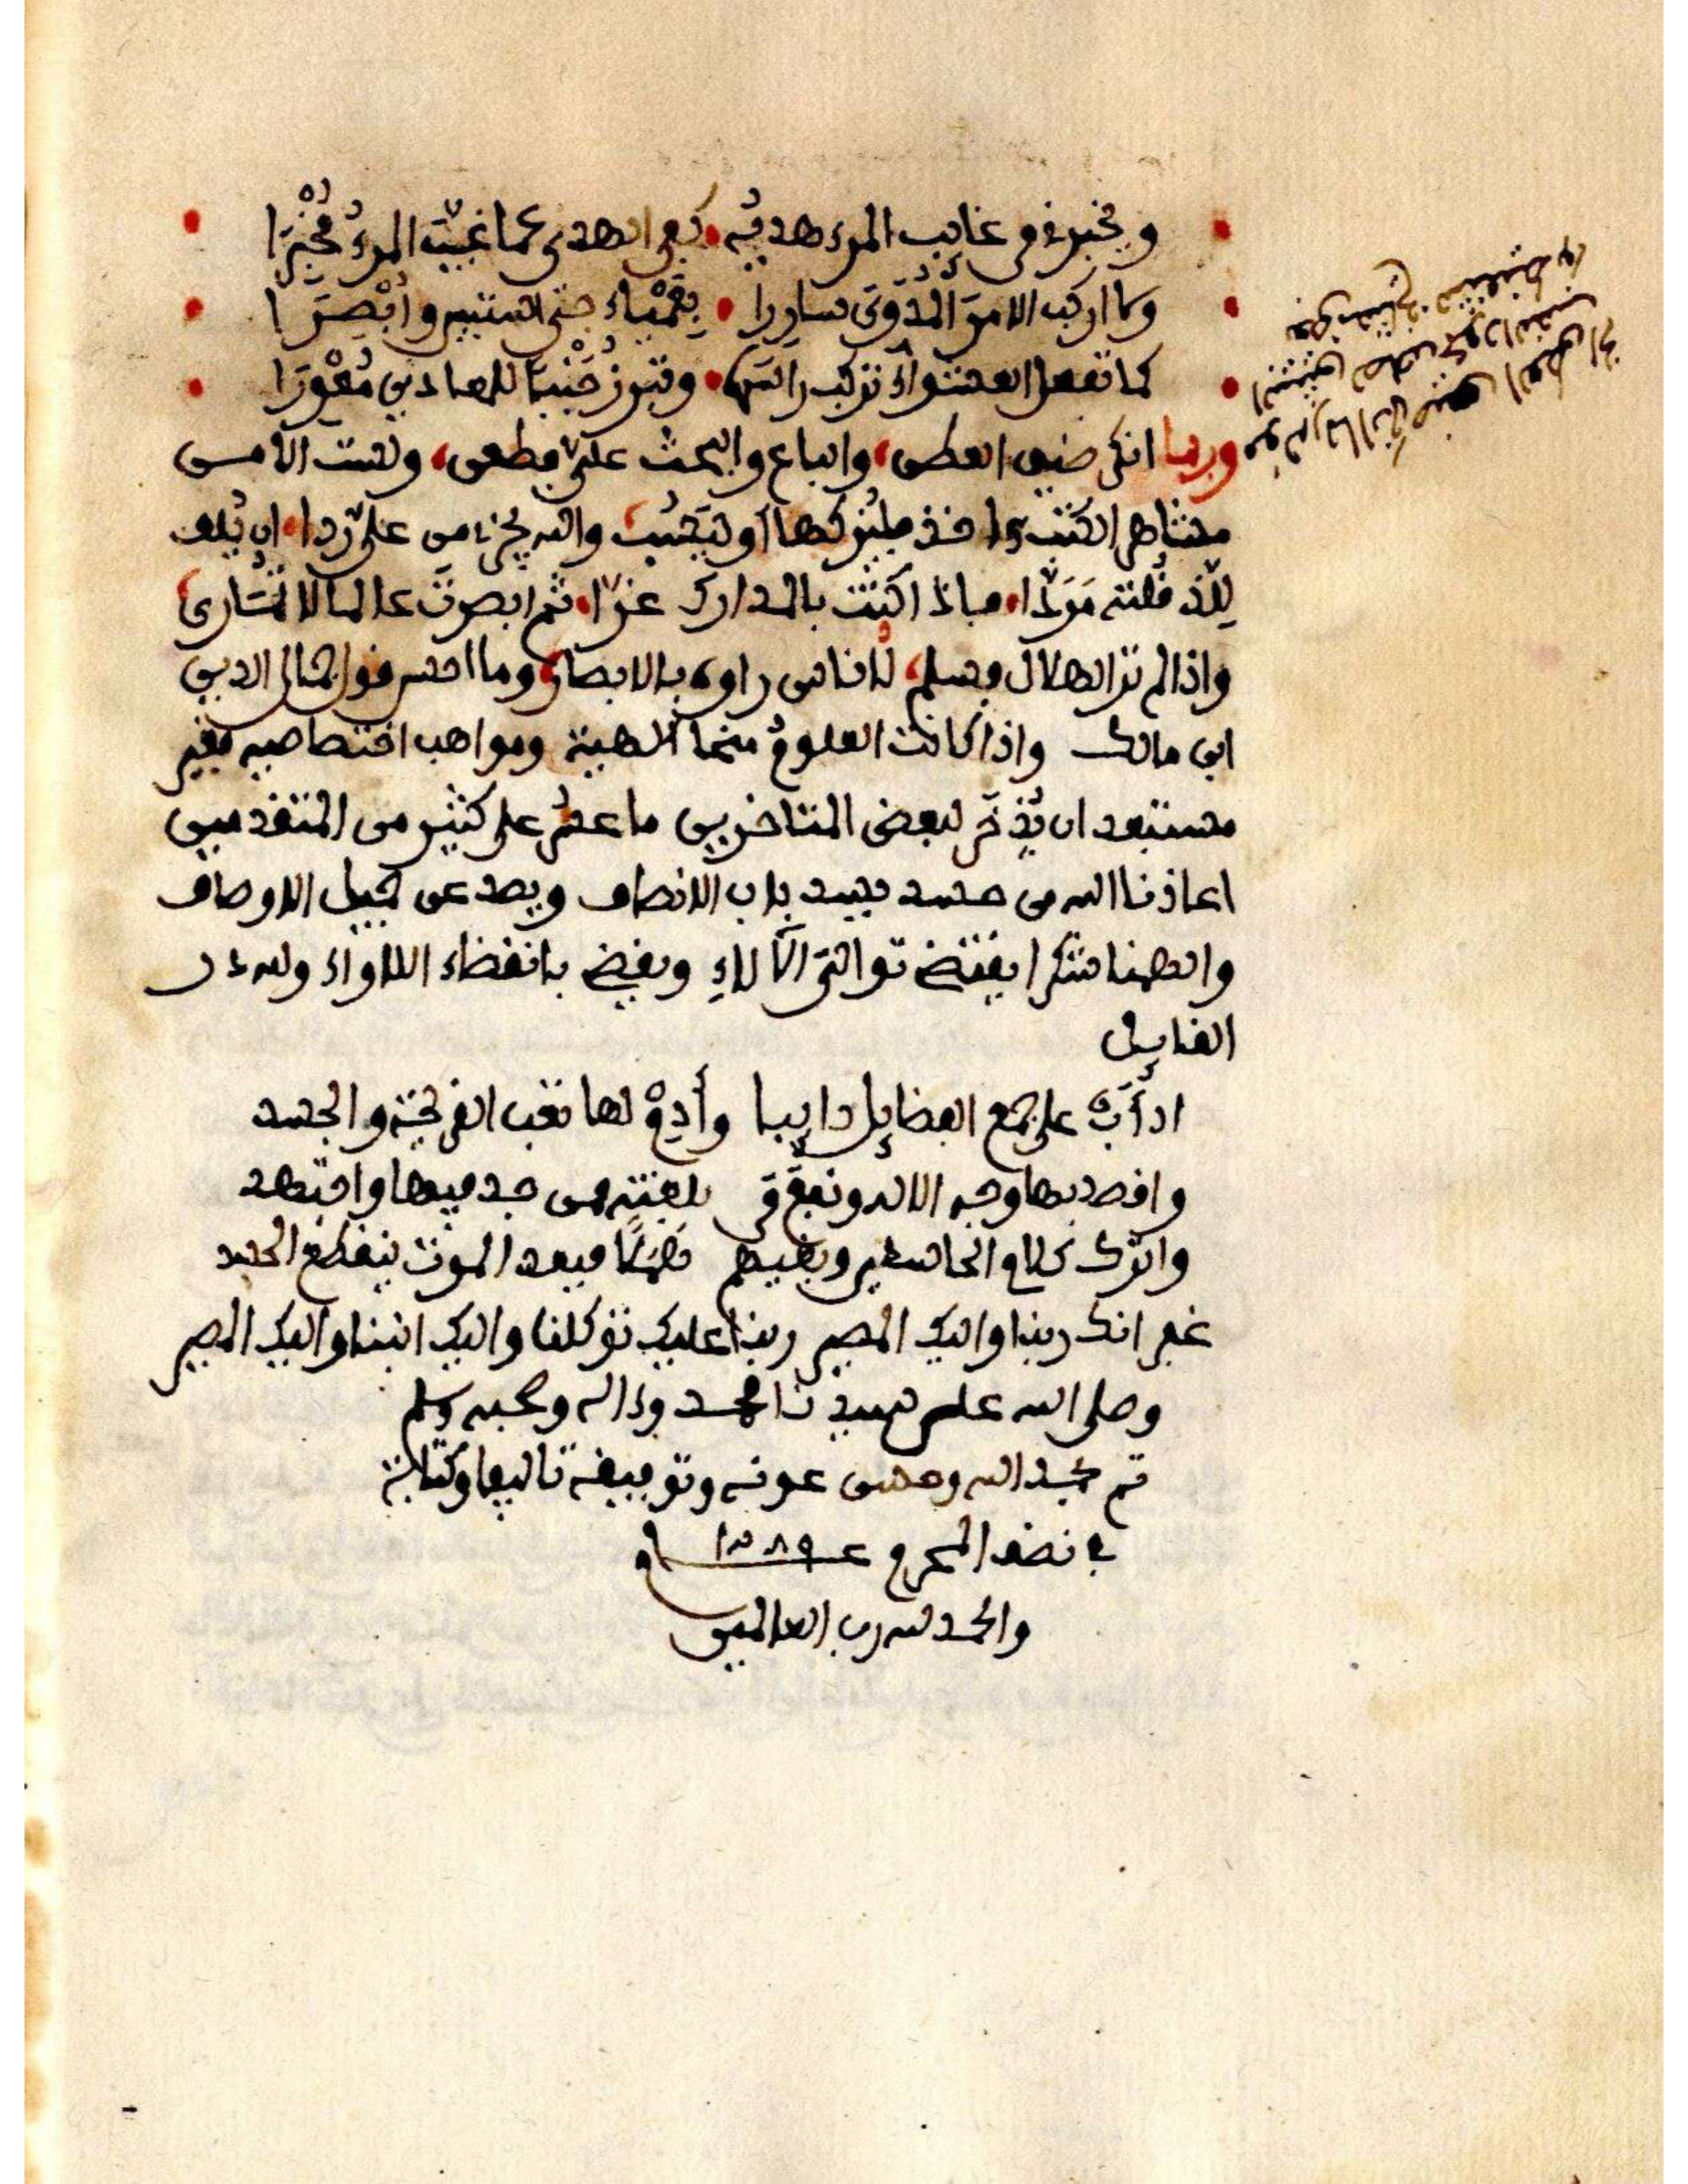 ويخبرني عن غايب المرء هديه كفى الهدي عما غيب المرء مخبرا
وما اركب الامر المدوي سادرا بعمياء حتى استبين وابصرا
كما تفعل العشواء تركب راسها وتبرز جنبا للمعادين معورا
وربما انكر ضيق العطن والباع والبحث على مطعى ولست الامس
الكتب او ليجتنب والله يجزي من على ردا ان يلف
للذ قلته مردا فاذا كنت بالمدارك غرا ثم ابصرت عالما لا تماري
واذا لم تر الهلال فسلم لاناس راوه بالابصار وما احسن قول جمال الدين
ابن مالك واذا كانت العلوم منحا الهية ومواهب اختصاصيه فغير
مستبعد ان يذخر لبعض المتاخرين ما عسر على كثير من المتقدمين
اعاذنا الله من حسد يسد باب الانصاف ويصد عن جميل الاوصاف
والهمنا شكرا يقتضي توالي الآلاء ويقضي بانقضاء اللاواء ولله در
القايل
ادأب على جمع الفضايل دايبا وأدم لها تعب القريحة والجسد
واقصد بها وجه الاله ونفع من بلغته ممن جد فيها واجتهد
واترك كلام الحاسدين وبغيهم هملا فبعد الموت ينقطع الحسد
غفرانك ربنا واليك المصير ربنا عليك توكلنا واليك انبنا واليك المصير
وصلى الله على سيدنا محمد وءاله وصحبه وسلم
تم بحمد الله وحسن عونه وتوفيقه تاليفا وكتابة
في نصف المحرم عام
والحمد لله رب العالمين